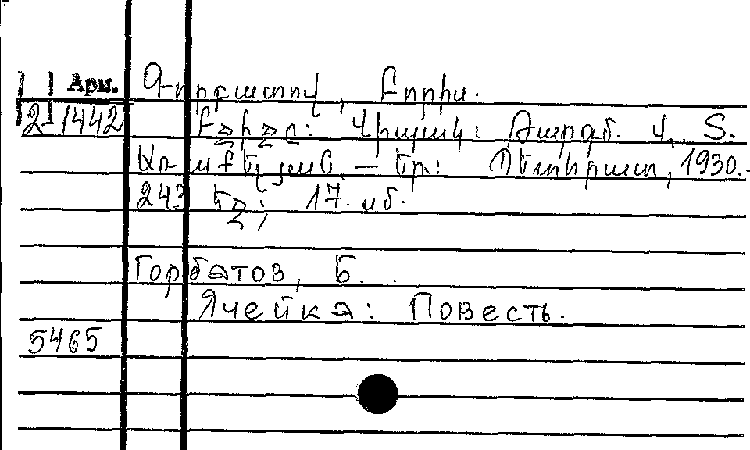 Арм. Գորբատով, Բորիս.
2-1442 Բջիջը: Վիպակ: Թարգմ. Վ, Տ.
— Եր: Պետհրատ, 1930.-
243 եջ; 17 սմ.
Горбатов, Б.
Ячейка: Повесть.
5465